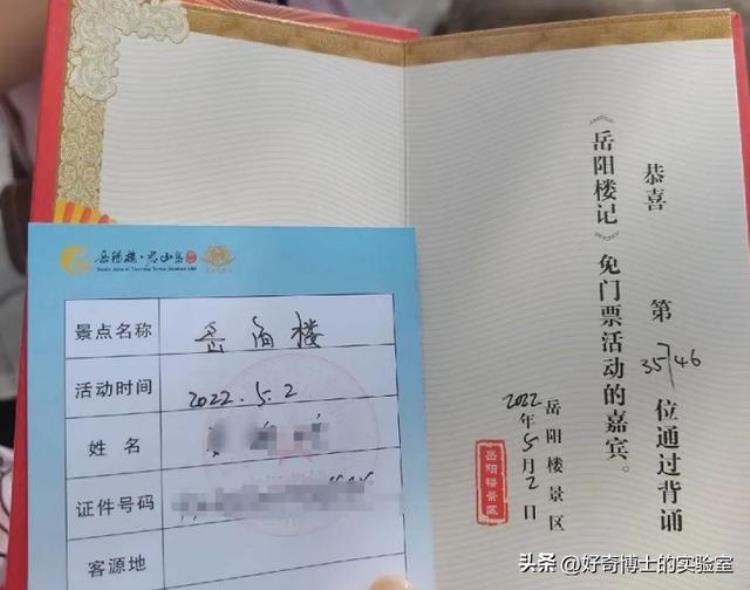 岳阳楼·君山岛
景点名称 岳阳楼
活动时间 2022.5.2
姓名
证件号码
客源地
恭喜 第35746位通过背诵
《岳阳楼记》免门票活动的嘉宾。
岳阳楼景区
2022年5月2日
岳阳楼景区
头条 @好奇博士的实验室